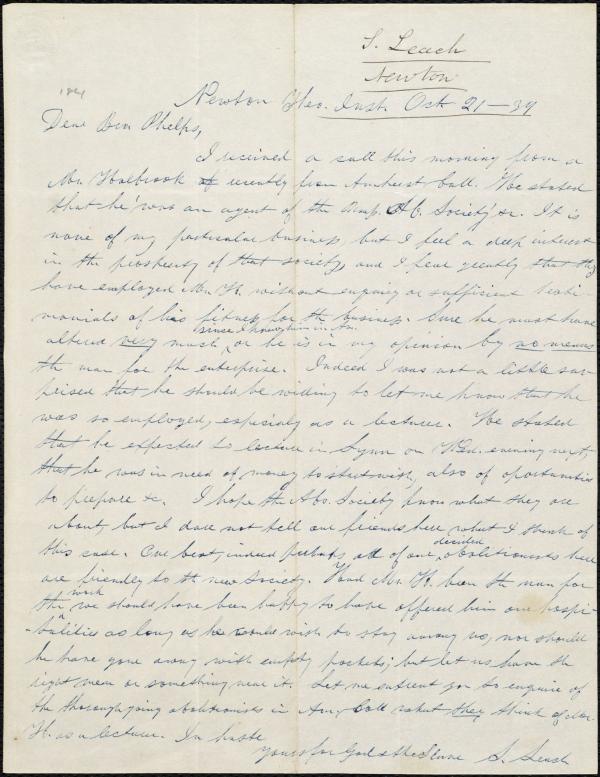 S. Leach
Newton
Newton Theo. Inst. Oct. 21—39
Dear Bro Phelps,
I received a call this morning from a
Mr. Holbrook recently from Amherst Coll. He stated
that he was an agent of the Ab. Society &c. It is
none of my particular business, but I feel a deep interest
in the prosperity of that society, and I fear greatly that they
have employed Mr. H. without enquiry or sufficient testi-
monials of his fitness for the business. Sure he must have
since I knew him in Am.
altered very much or he is in my opinion by no means
the man for the enterprise. Indeed I was not a little sur-
prised that he should be willing to let me know that he
was so employed, especialy as a lecturer. He stated
that he expected to lecture in Lynn on Wed. evening next,
that he was in need of money to start with, also of oportunities
to prepare &c. I hope the Abo. Society know what they are
about, but I dare not tell our friends here what I think of
decided
this case. Our best, indeed perhaps all of our abolitionists here
are friendly to the new Society. Had Mr. H. been the man for
work
the we should have been happy to have offered him our hospi-
talities as long as he could wish to stay among us, nor should
he have gone away with empty pockets; but let us have the
right men or something near it. Let me entreat you to enquire of
the thorough going abolitionists in Am. Coll what they think of Mr.
H. as a lecturer. In haste
yours for God & the Slave S. Leach